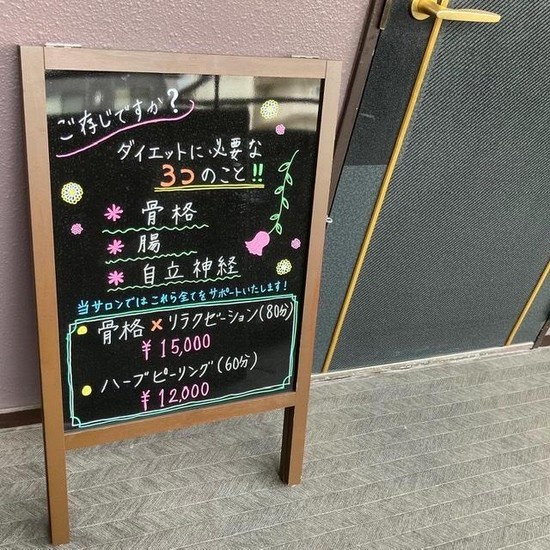 ご存じですか?
ダイエットに必要な
3つのこと!!
* 骨格
* 腸
* 自立神経
当サロンではこれら全てをサポートいたします!
骨格×リラクゼーション(80分)
¥15,000
ハーブピーリング(60分)
¥12,000